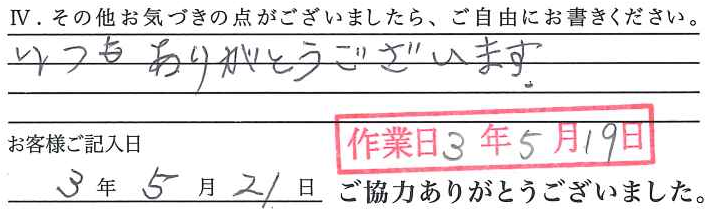 Ⅳ．その他お気づきの点がございましたら、ご自由にお書きください。
いつも ありがとうございます.
お客様ご記入日
作業日3年5月19日
3年5月21日 ご協力ありがとうございました。